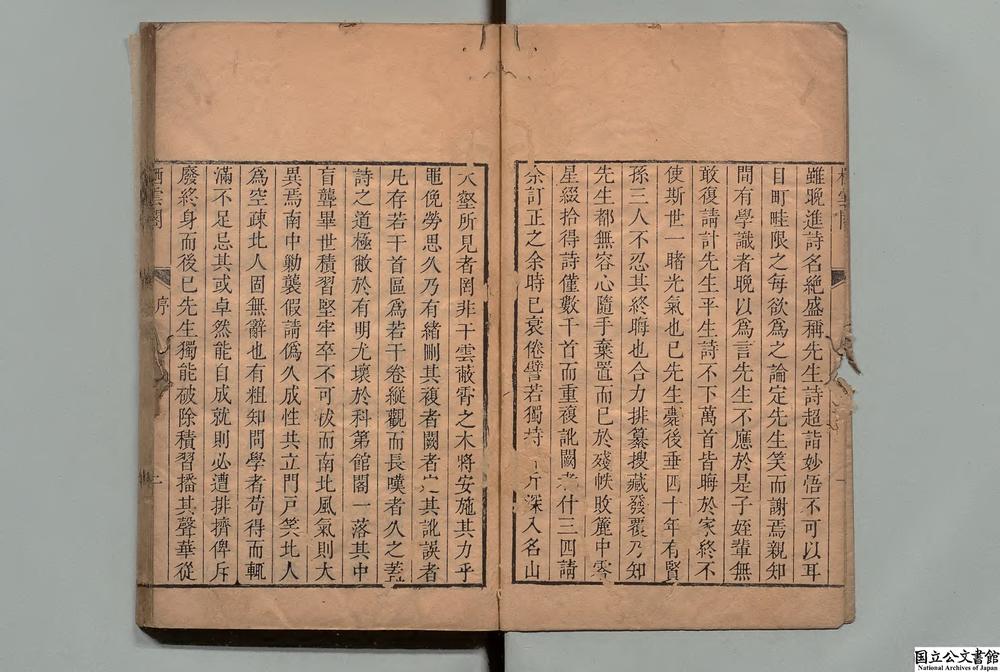 雖晚進詩名絶盛稱先生詩超詣妙悟不可以耳
目町畦限之每欲爲之論定先生笑而謝焉親知
間有學識者晚以爲言先生不應於是子姪輩無
敢復請計先生平生詩不下萬首皆晦於家終不
使斯世一睹光氣也已先生薨後垂四十年有賢
孫三人不忍其終晦也合力排纂搜藏發覆乃知
先生都無容心隨手棄置而已於殘帙敗簏中零
星綴拾得詩僅數千首而重複訛闕者什三四請
余訂正之余時已衰倦譬若獨持斤深入名山
大壑所見者罔非干雲蔽霄之木將安施其力乎
黽俛勞思久乃有緒刪其複者闕者定其訛誤者
凡存若干首區爲若干卷縱觀而長嘆者久之
詩之道極敝於有明尤壞於科第館閣一落其中
盲聾畢世積習堅牢卒不可祓而南北風氣則大
異焉南中勦襲假請僞久成性其立門戸笑北人
爲空疎北人固無辭也有粗知問學者苟得而輒
滿不足忌其或卓然能自成就則必遭排擠俾斥
廢終身而後已先生獨能破除積習播其聲華從
雲閣
序
国立公文書館
National Archives of Japan